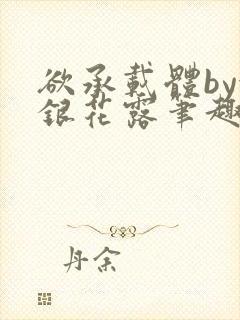 欲承載體by
銀花露筆趣
丹余